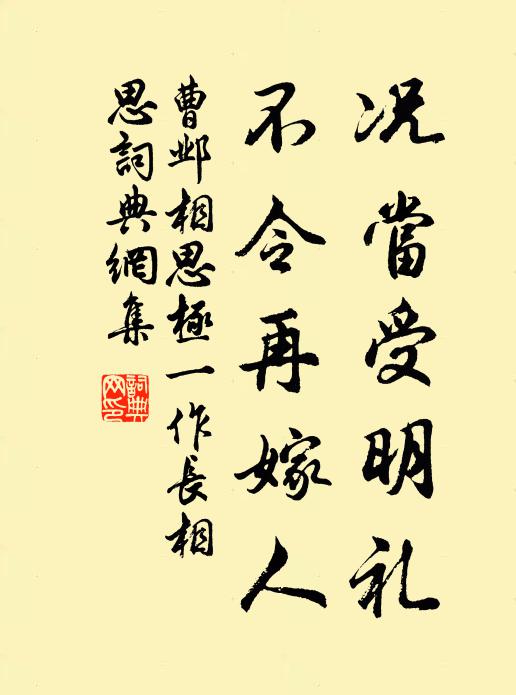 况當受明礼
不令再嫁人
曹邺相思極一作長相
思詞典網集
詞典
网印